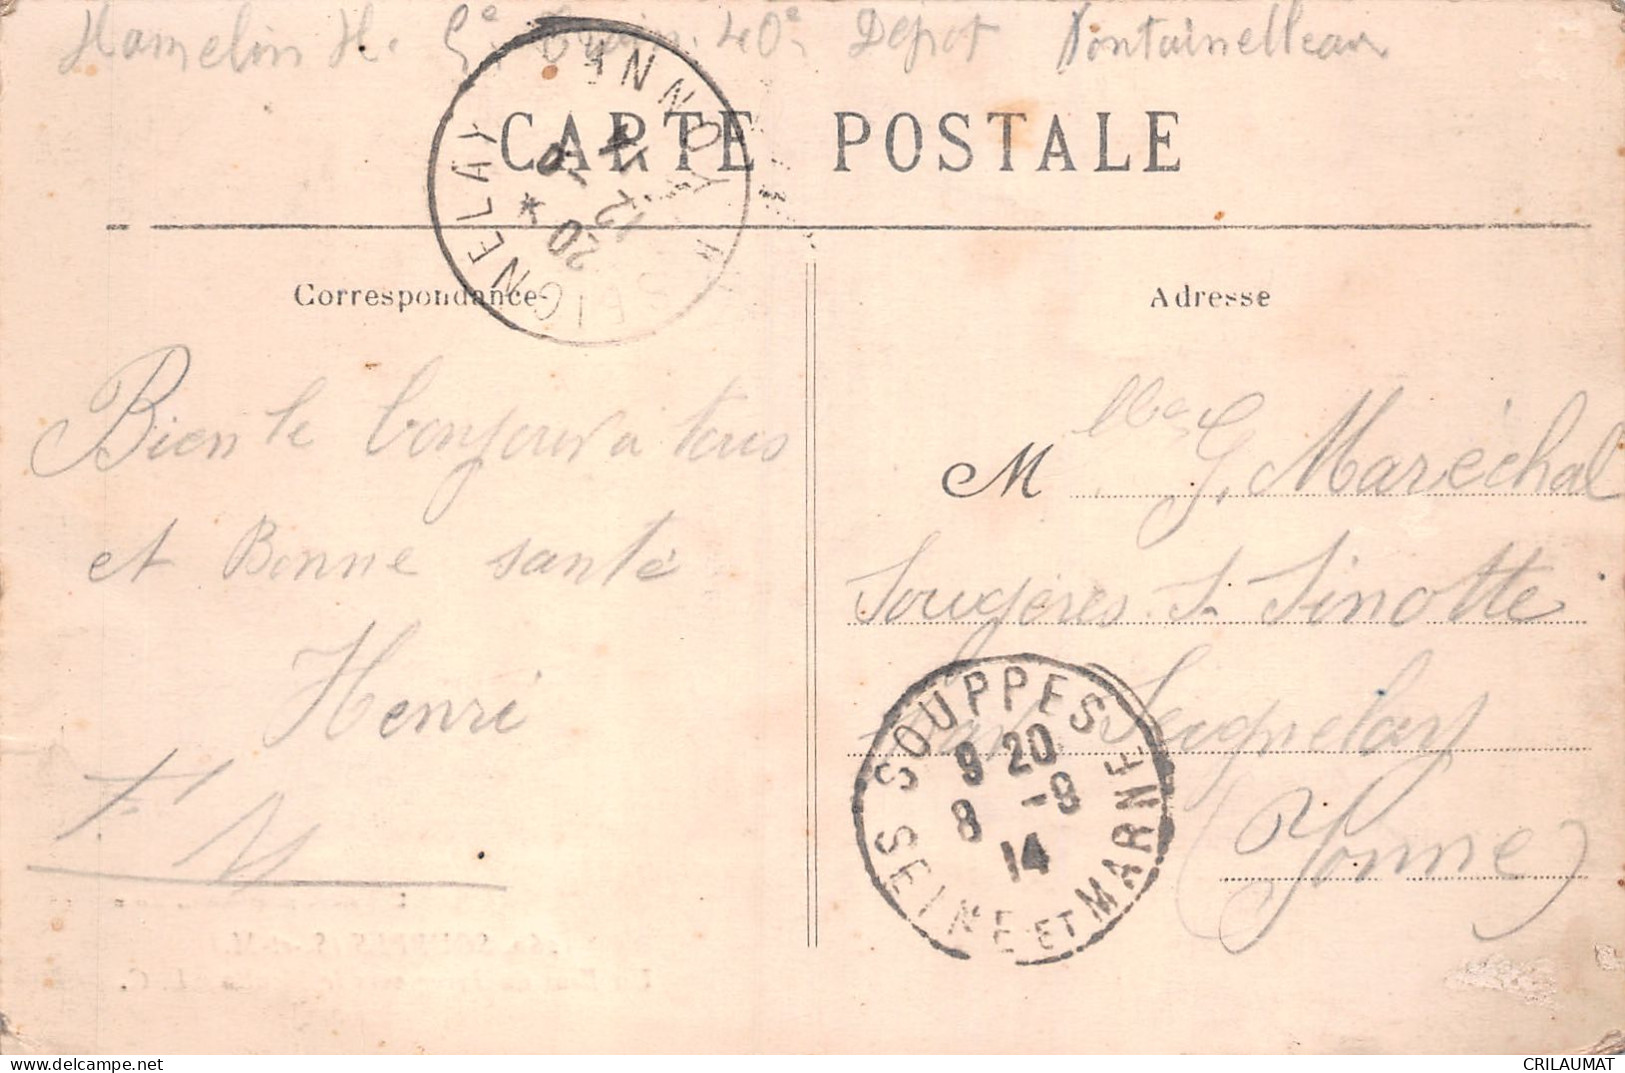 Hamelin H. 5e Train. 40e Depot Fontainelleau
CARTE POSTALE
YONNE * SEIGNELAY *
20
12
Correspondance
Adresse
Bien le bonjour a tous
et Bonne santé
Henri
M lle G. Maréchal
Sougères S. Sinotte
par Seignelay
(Yonne)
SOUPPES
9 20
8 -8
14
SEINE ET MARNE
SOUPPES (S.-et-M.)
L. C.
CRILAUMAT